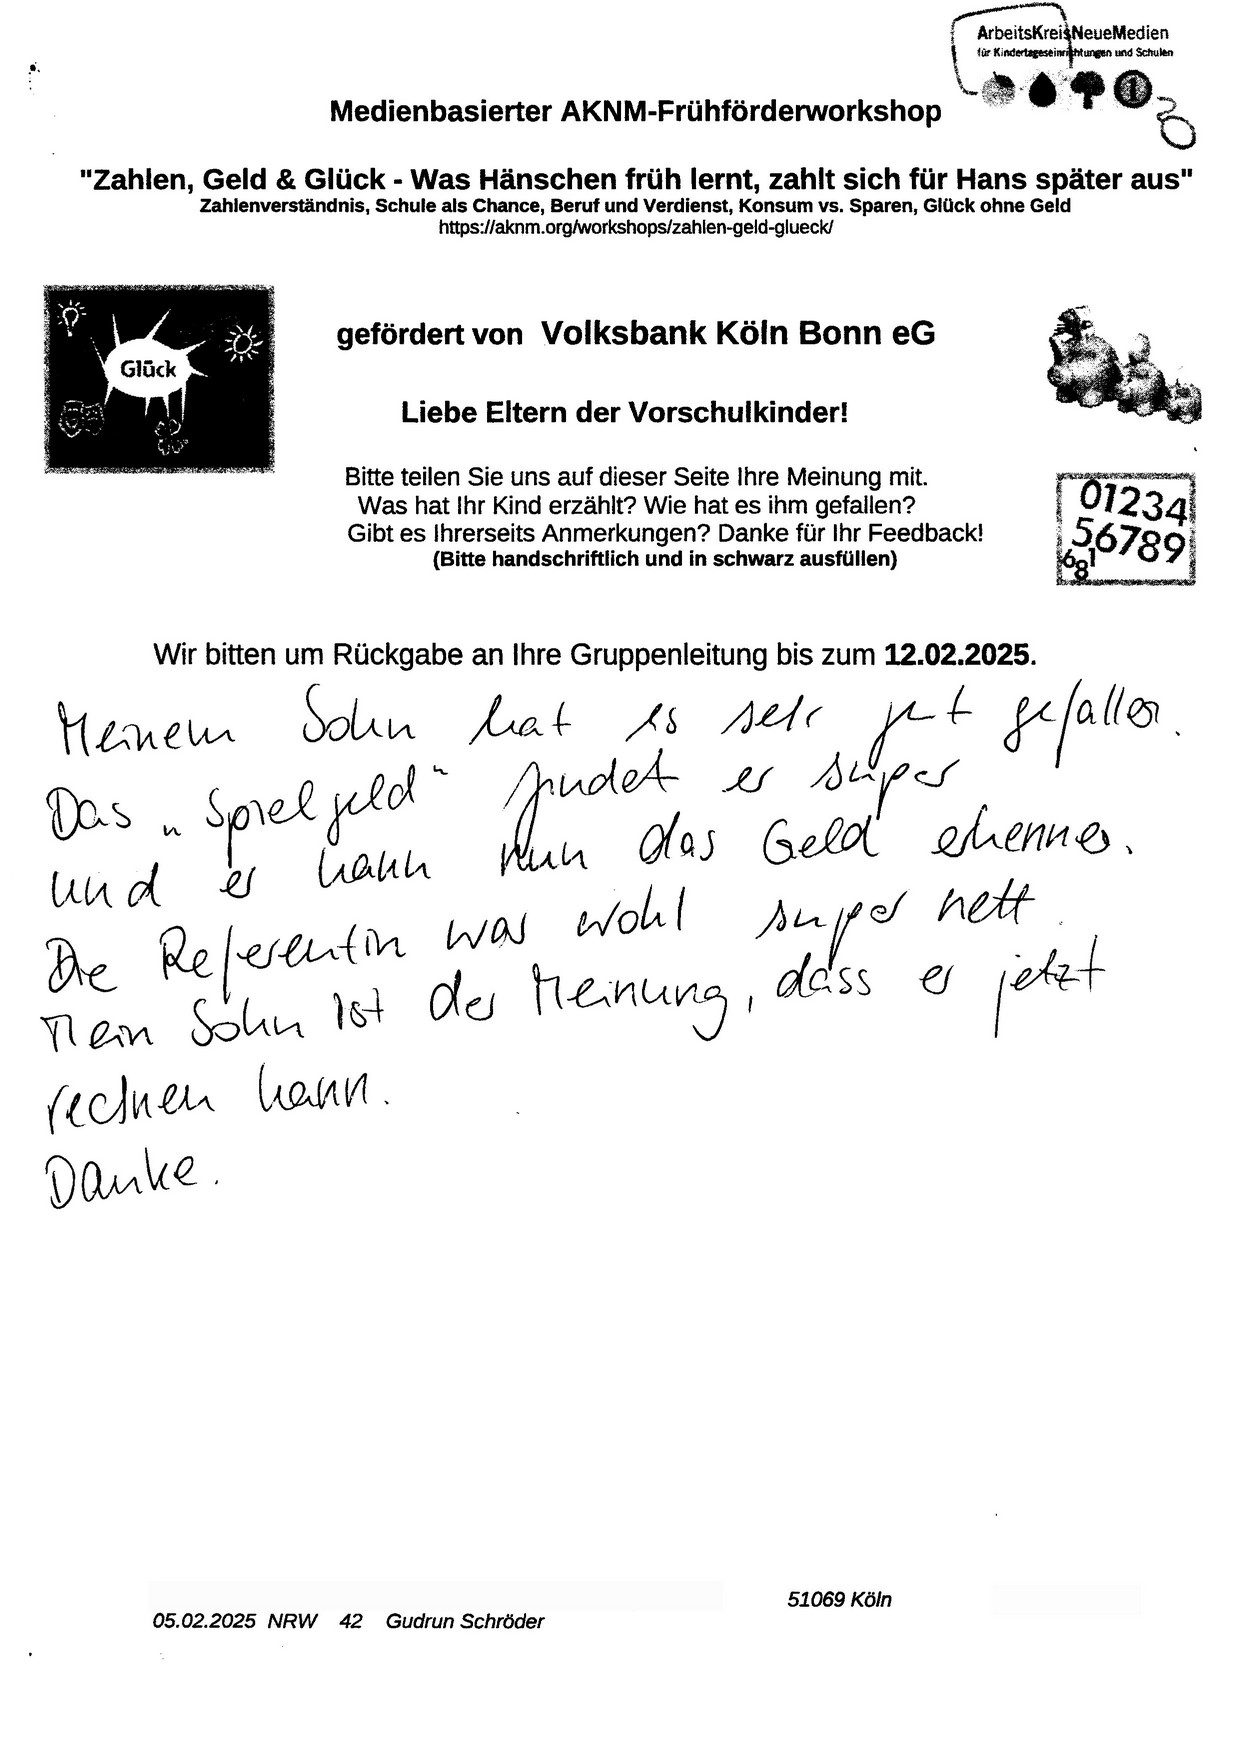 ArbeitsKreisNeueMedien
für Kindertageseinrichtungen und Schulen
Medienbasierter AKNM-Frühförderworkshop
"Zahlen, Geld & Glück - Was Hänschen früh lernt, zahlt sich für Hans später aus"
Zahlenverständnis, Schule als Chance, Beruf und Verdienst, Konsum vs. Sparen, Glück ohne Geld
https://aknm.org/workshops/zahlen-geld-glueck/
Glück
gefördert von Volksbank Köln Bonn eG
Liebe Eltern der Vorschulkinder!
Bitte teilen Sie uns auf dieser Seite Ihre Meinung mit.
Was hat Ihr Kind erzählt? Wie hat es ihm gefallen?
Gibt es Ihrerseits Anmerkungen? Danke für Ihr Feedback!
(Bitte handschriftlich und in schwarz ausfüllen)
01234
56789
681
Wir bitten um Rückgabe an Ihre Gruppenleitung bis zum 12.02.2025.
Meinem Sohn hat es sehr gut gefallen.
Das „Spielgeld" findet er super
und er kann nun das Geld erkennen.
Die Referentin war wohl super nett.
Mein Sohn ist der Meinung, dass er jetzt
rechnen kann.
Danke.
51069 Köln
05.02.2025 NRW 42 Gudrun Schröder